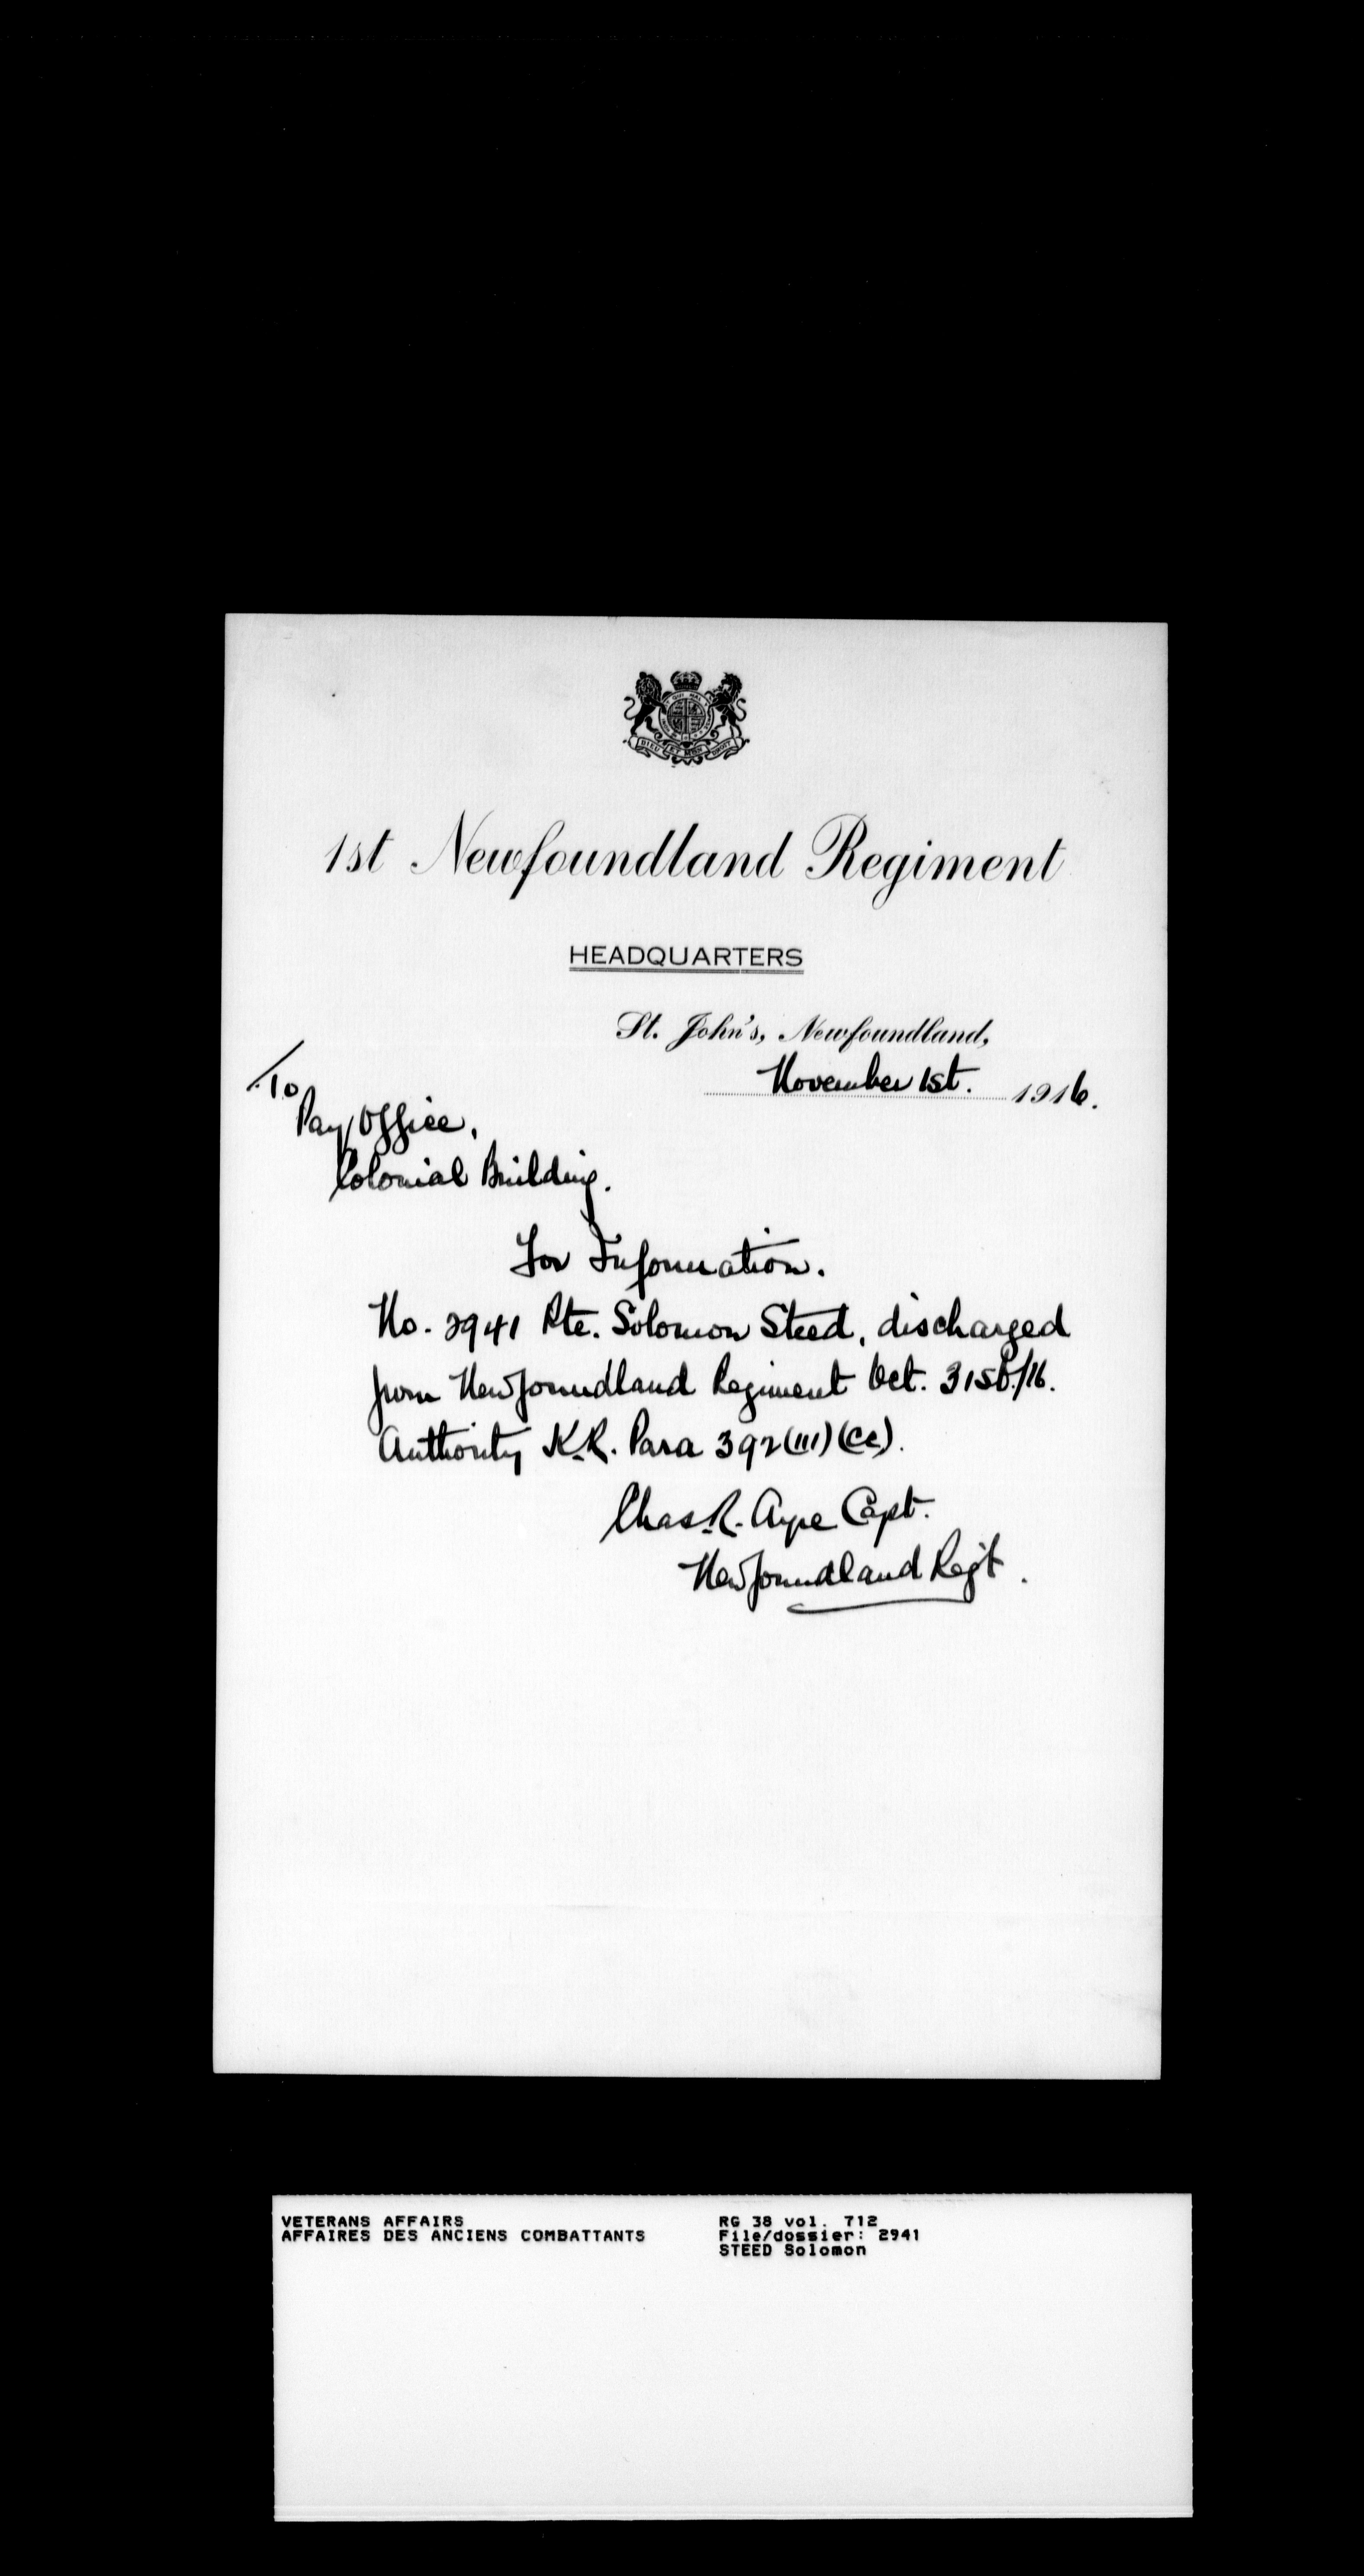 DIEU ET MON DROIT
1st Newfoundland Regiment
HEADQUARTERS
St. John's, Newfoundland,
November 1st. 1916.
To
Pay Office,
Colonial Building.
For Information.
No. 2941 Pte. Solomon Steed, discharged
from Newfoundland Regiment Oct. 31st/16.
Authority K.R. Para 392 (III) (cc).
Chas. R. Ayre Capt.
Newfoundland Reg't.
VETERANS AFFAIRS
AFFAIRES DES ANCIENS COMBATTANTS
RG 38 vol. 712
File/dossier: 2941
STEED Solomon